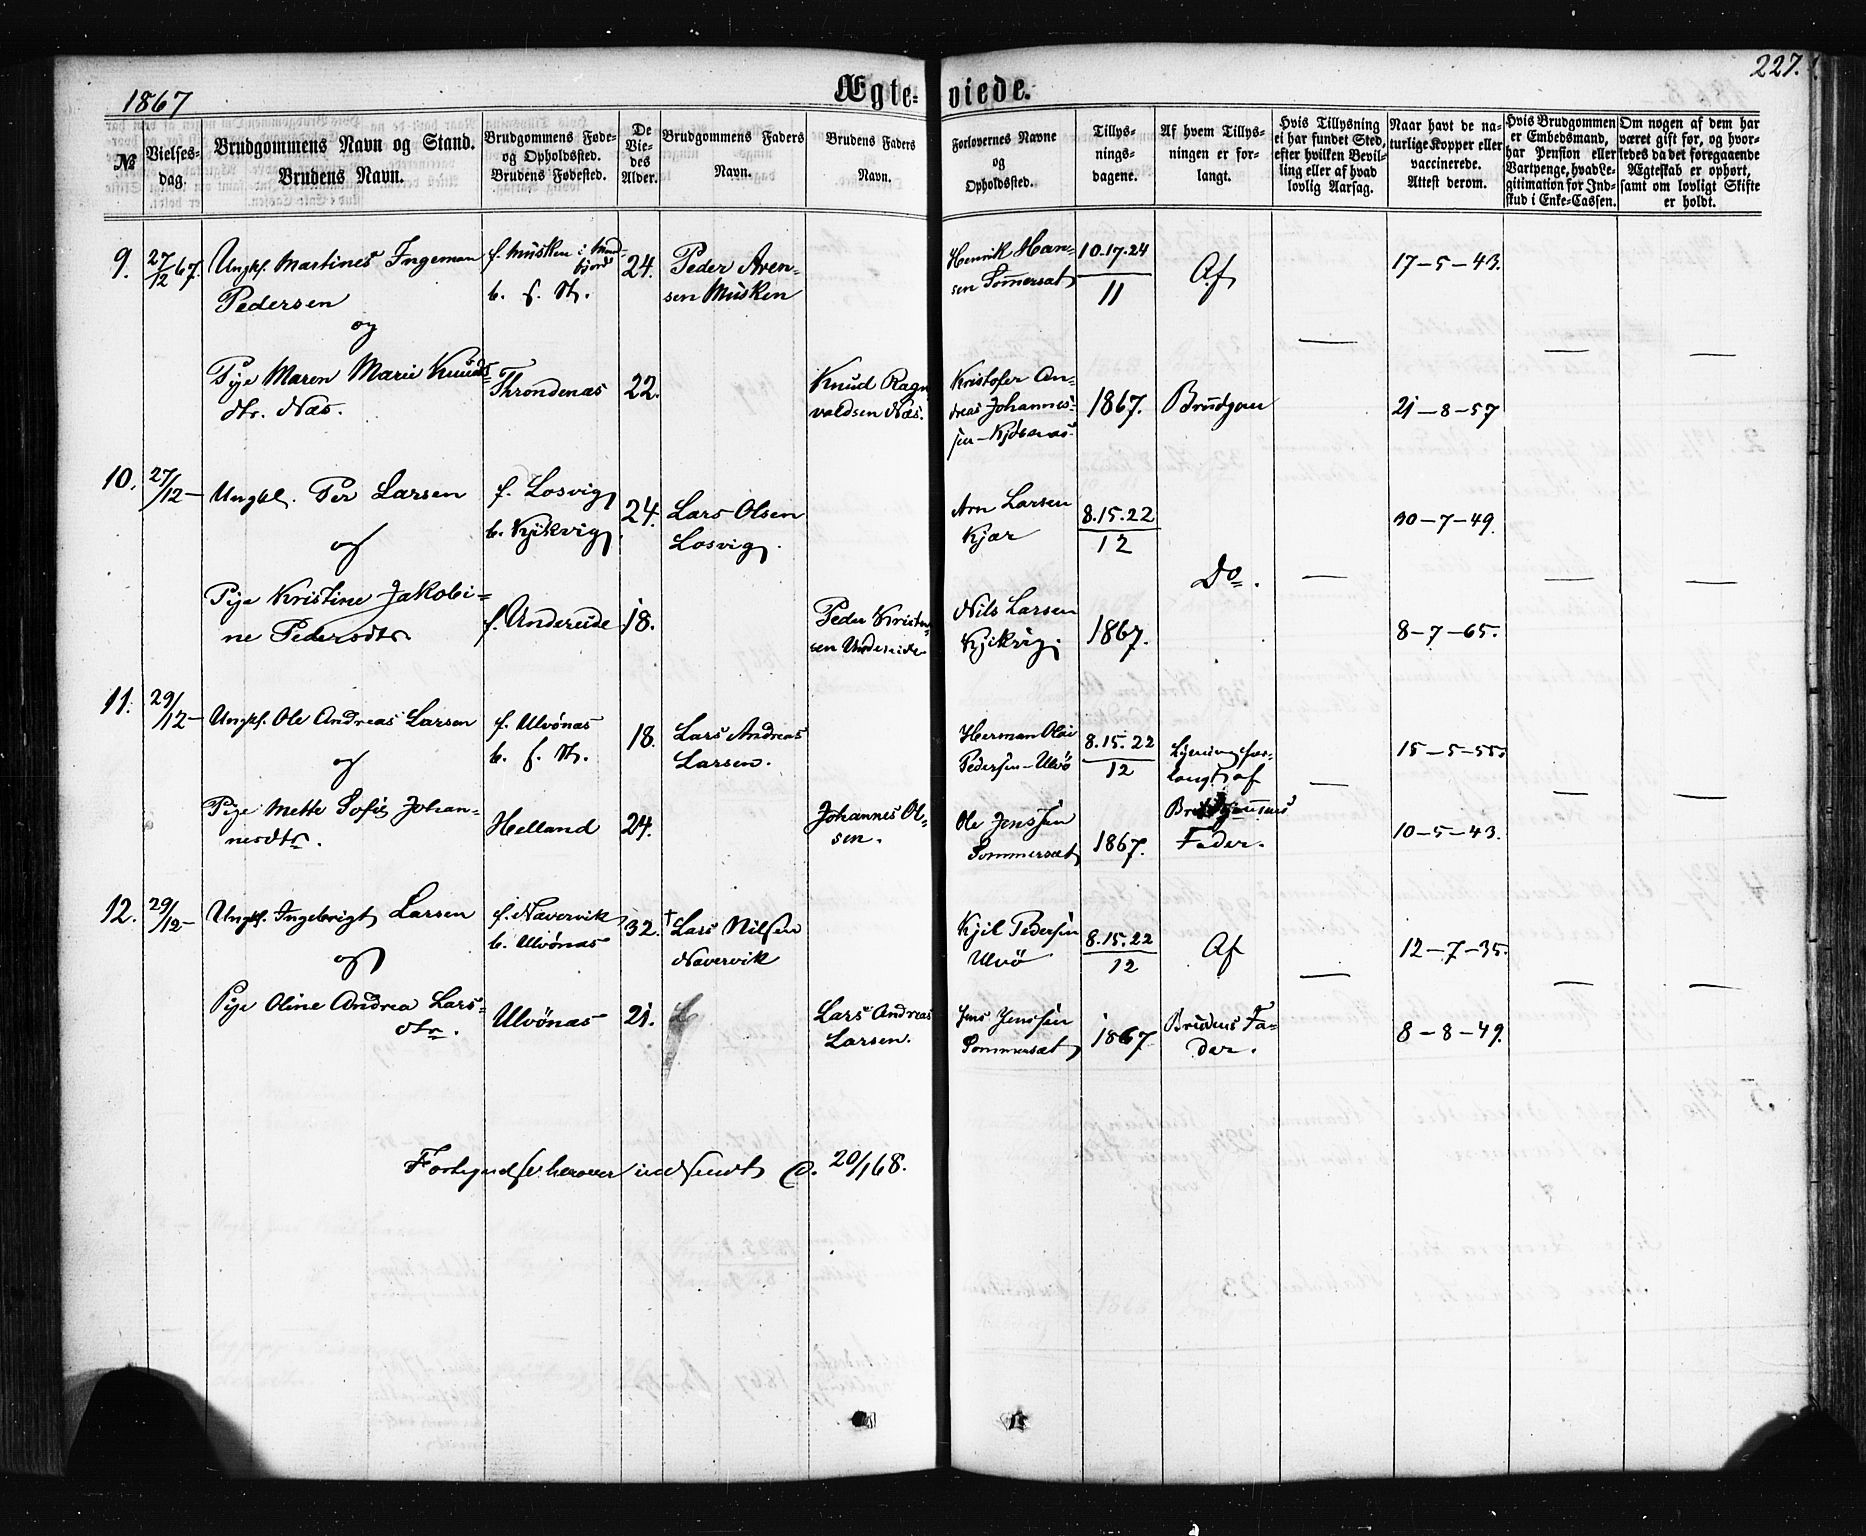 1867
Ægteviede.
227.
№
Vielses-
dag.
Brudgommens Navn og Stand.
Brudens Navn.
Brudgommens Føde-
og Opholdssted.
Brudens Fødested.
De
Vie-
des
Alder.
Brudgommens Faders
Navn.
Brudens Faders
Navn.
Forlovernes Navne
og
Opholdssted.
Tillys-
nings-
dagene.
Af hvem Tillys-
ningen er for-
langt.
Hvis Tillysning
ei har fundet Sted,
efter hvilken Bevil-
ling eller af hvad
lovlig Aarsag.
Naar havt de na-
turlige Kopper eller
vaccinerede.
Attest derom.
Hvis Brudgommen
er Embedsmand,
har Pension eller
Vartpenge, hvad Le-
gitimation for Ind-
skud i Enke-Cassen.
Om nogen af dem har
været gift før, og hvor-
ledes da det foregaaende
Ægteskab er ophørt,
samt om lovligt Skifte
er holdt.
9. 27/12 67. Ungk. Martines Ingeman
Pedersen
og
f. Musken i
fjord
b. f. St.
24. Peder Aren-
sen Musken
Henrik Han-
sen Sommersæt
10.17.24
11
Af
17-5-43.
Pige Maren Marie Knuds-
dtr. Næs.
Throndenæs 22. Knud Ragn
valdsen Næs.
Kristofer An-
dreas Johannes-
sen - Kjösenæs
1867. Brudgom 21-8-57
10. 27/12 - Ungkl. Per Larsen
og
f. Losvig
b. Kjikvig
24. Lars Olsen
Losvig.
Arn Larsen
Kjær
8.15.22
12
30-7-49.
Do.
Pige Kristine Jakobi=
ne Pedersdtr
f. Andereide 18. Peder Kristen-
sen Undereide
Nils Larsen
Kjikvig.
1867. 8-7-65.
11. 29/12 - Ungk. Ole Andreas Larsen
og
f. Ulvönæs
b. f. St.
18. Lars Andreas
Larsen.
Herman Olai
Pedersen - Ulvö
8.15.22
12
Lysning for-
langt af
15-5-55.
Pige Mette Sofie Johan-
nesdtr.
Helland 24. Johannes Ol-
sen.
Ole Jenssen
Sommersæt
1867.
Brudgommens
Fader.
10-5-43.
12. 29/12 - Ungk. Ingebrigt Larsen
og
f. Nævervik
b. Ulvönæs
32. † Lars Nilsen
Nævervik
Kjil Pedersen
Ulvö
8.15.22
12
Af
12-7-35.
Pige Oline Andrea Lars-
dtr.
Ulvönæs 21. Lars Andreas
Larsen.
Jens Jenssen
Sommersæt
1867 Brudens Fa-
der.
8-8-49.
Fortegnelse herover indsendt d. 20/1 68.